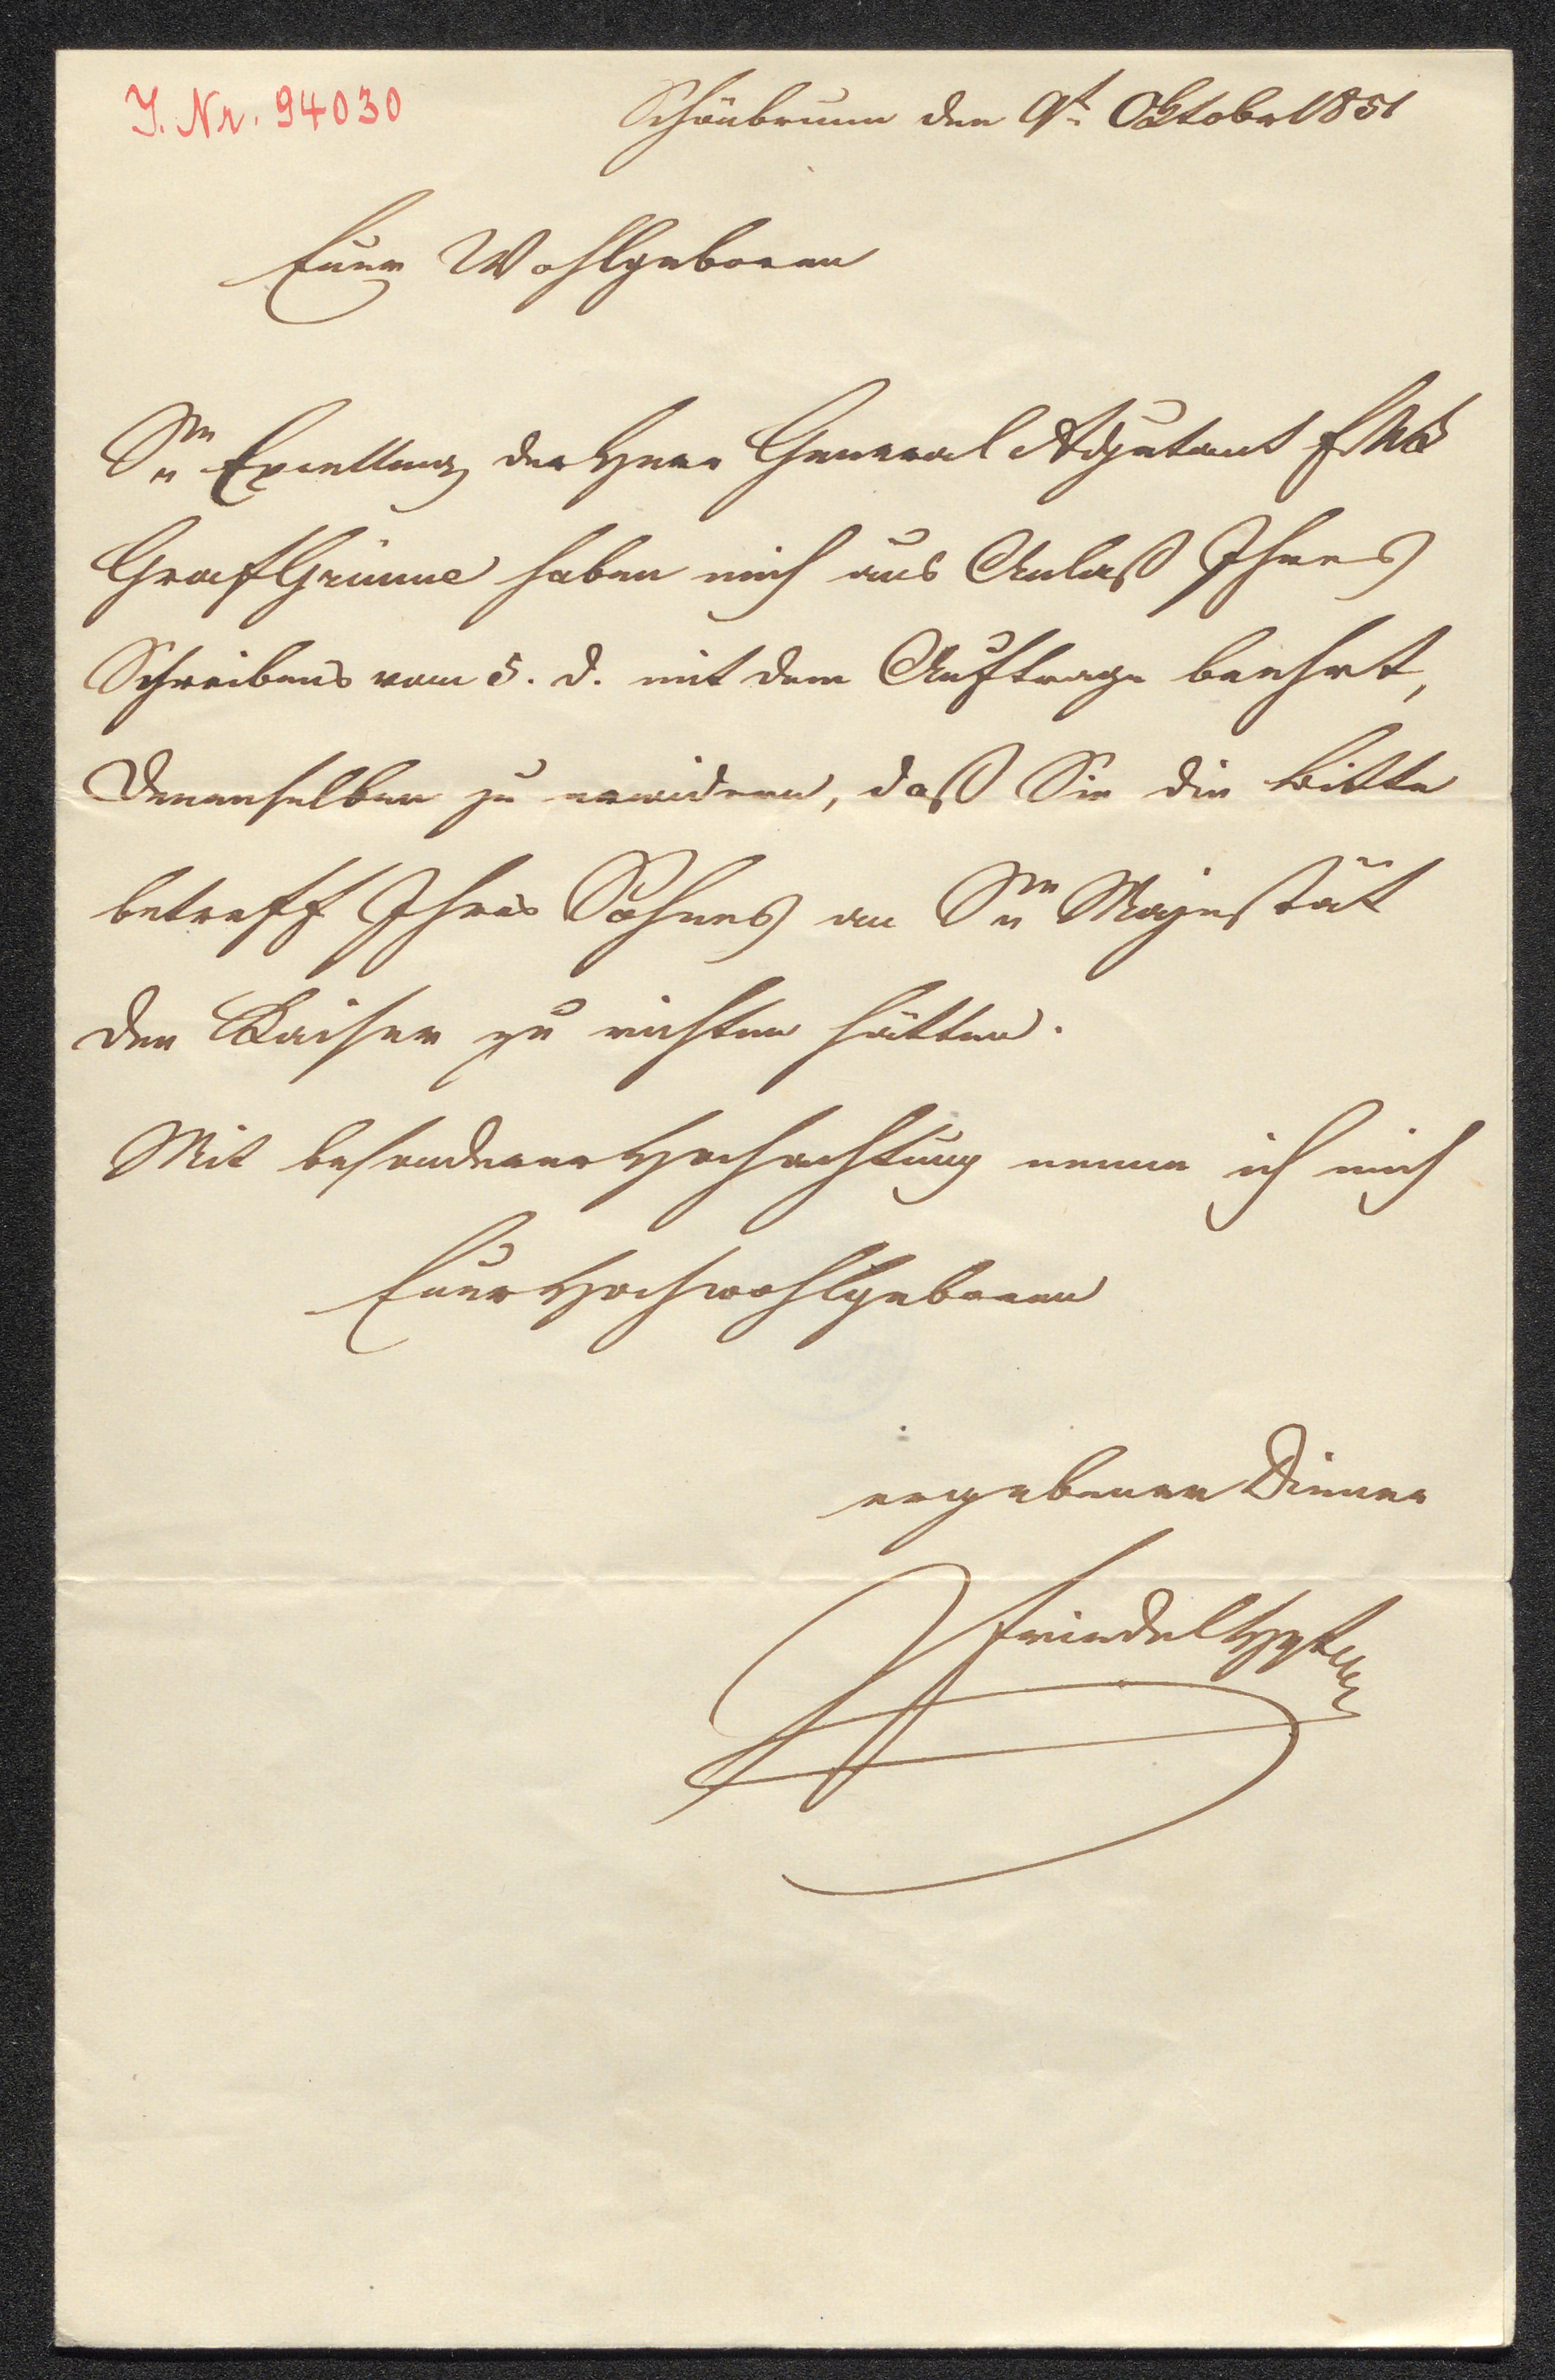 J. Nr. 94030
Schönbrunn den 9t. Oktober 1851
Euer Wohlgeboren
Se Excellenz der Herr General Adjutant FML
Graf Grünne haben mich aus Anlaß Ihres
Schreibens vom 5. d. mit dem Auftrage beehrt,
Denenselben zu erwidern, daß Sie die Bitte
betreff Ihres Sohnes an Se Majestät
den Kaiser zu richten hätten.
Mit besonderer Hochachtung nenne ich mich
Euer Hochwohlgeboren
ergebener Diener
Friedel